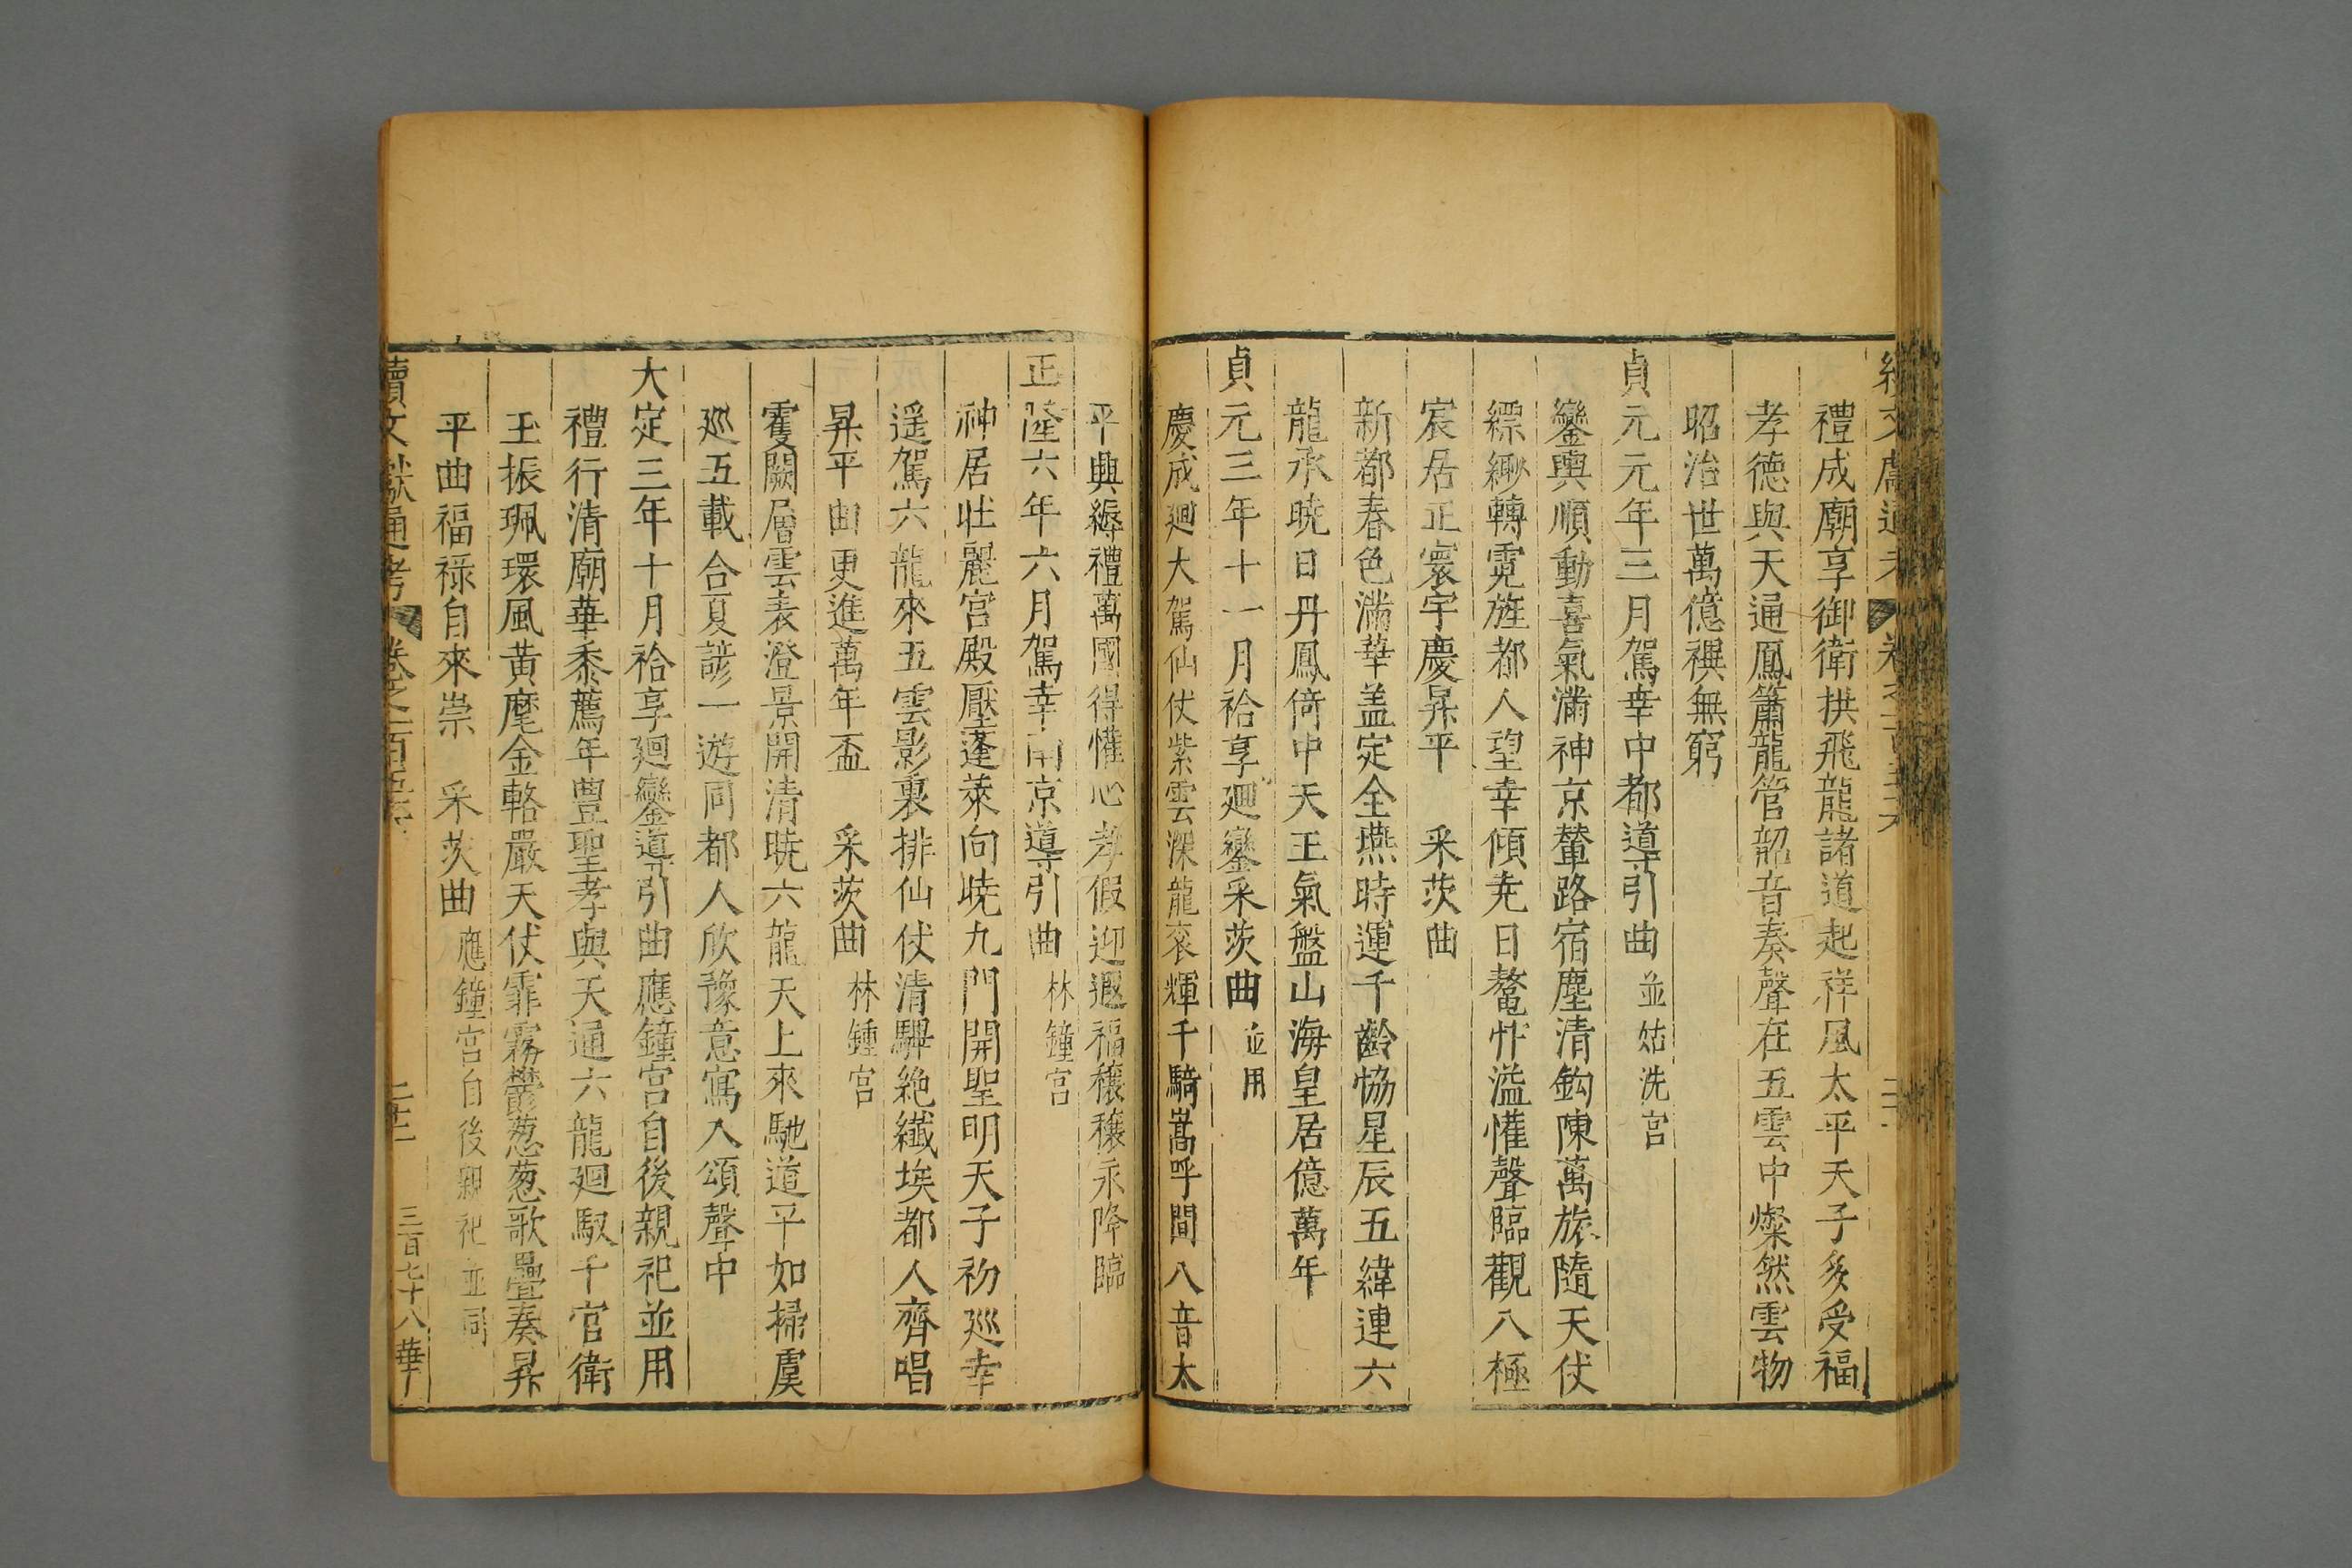 禮成廟享御衛拱飛龍諸道起祥風太平天子多受福
孝德與天通鳳簫龍管韶音奏聲在五雲中燦然雲物
昭治世萬億禩無窮
貞元元年三月駕幸中都導引曲並姑洗宮
鑾輿順動喜氣滿神京輦路宿塵清鈎陳萬旅隨天仗
縹緲轉霓旌都人望幸傾尭日鰲忭溢懽聲臨觀八極
宸居正寰宇慶昇平 采茨曲
新都春色滿華盖定全燕時運千齡恊星辰五緯連六
龍承曉日丹鳳倚中天王氣盤山海皇居億萬年
貞元三年十一月祫享廻鑾采茨曲並用
慶成廻大駕仙仗紫雲深龍衮輝千騎嵩呼間八音太
平興縟禮萬國得懽心孝假迎遐福穰穰永降臨
正隆六年六月駕幸南京導引曲林鐘宮
神居壯麗宮殿壓蓬萊向曉九門開聖明天子初廵幸
遥駕六龍來五雲影裏排仙仗清蹕絶纖埃都人齊唱
昇平曲更進萬年盃 采茨曲林鍾宮
雙闕層雲表澄景開清曉六龍天上來馳道平如掃虞
廵五載合夏諺一遊同都人欣豫意寫入頌聲中
大定三年十月祫享廻鑾導引曲應鐘宮自後親祀並用
禮行清廟華黍薦年豊聖孝與天通六龍廻馭千官衛
玉振珮環風黄麾金輅嚴天仗霏霧鬱葱葱歌疊奏昇
平曲福祿自來崇 采茨曲應鐘宮自後親祀並同
續文獻通考 卷之一百
三百七十八 華